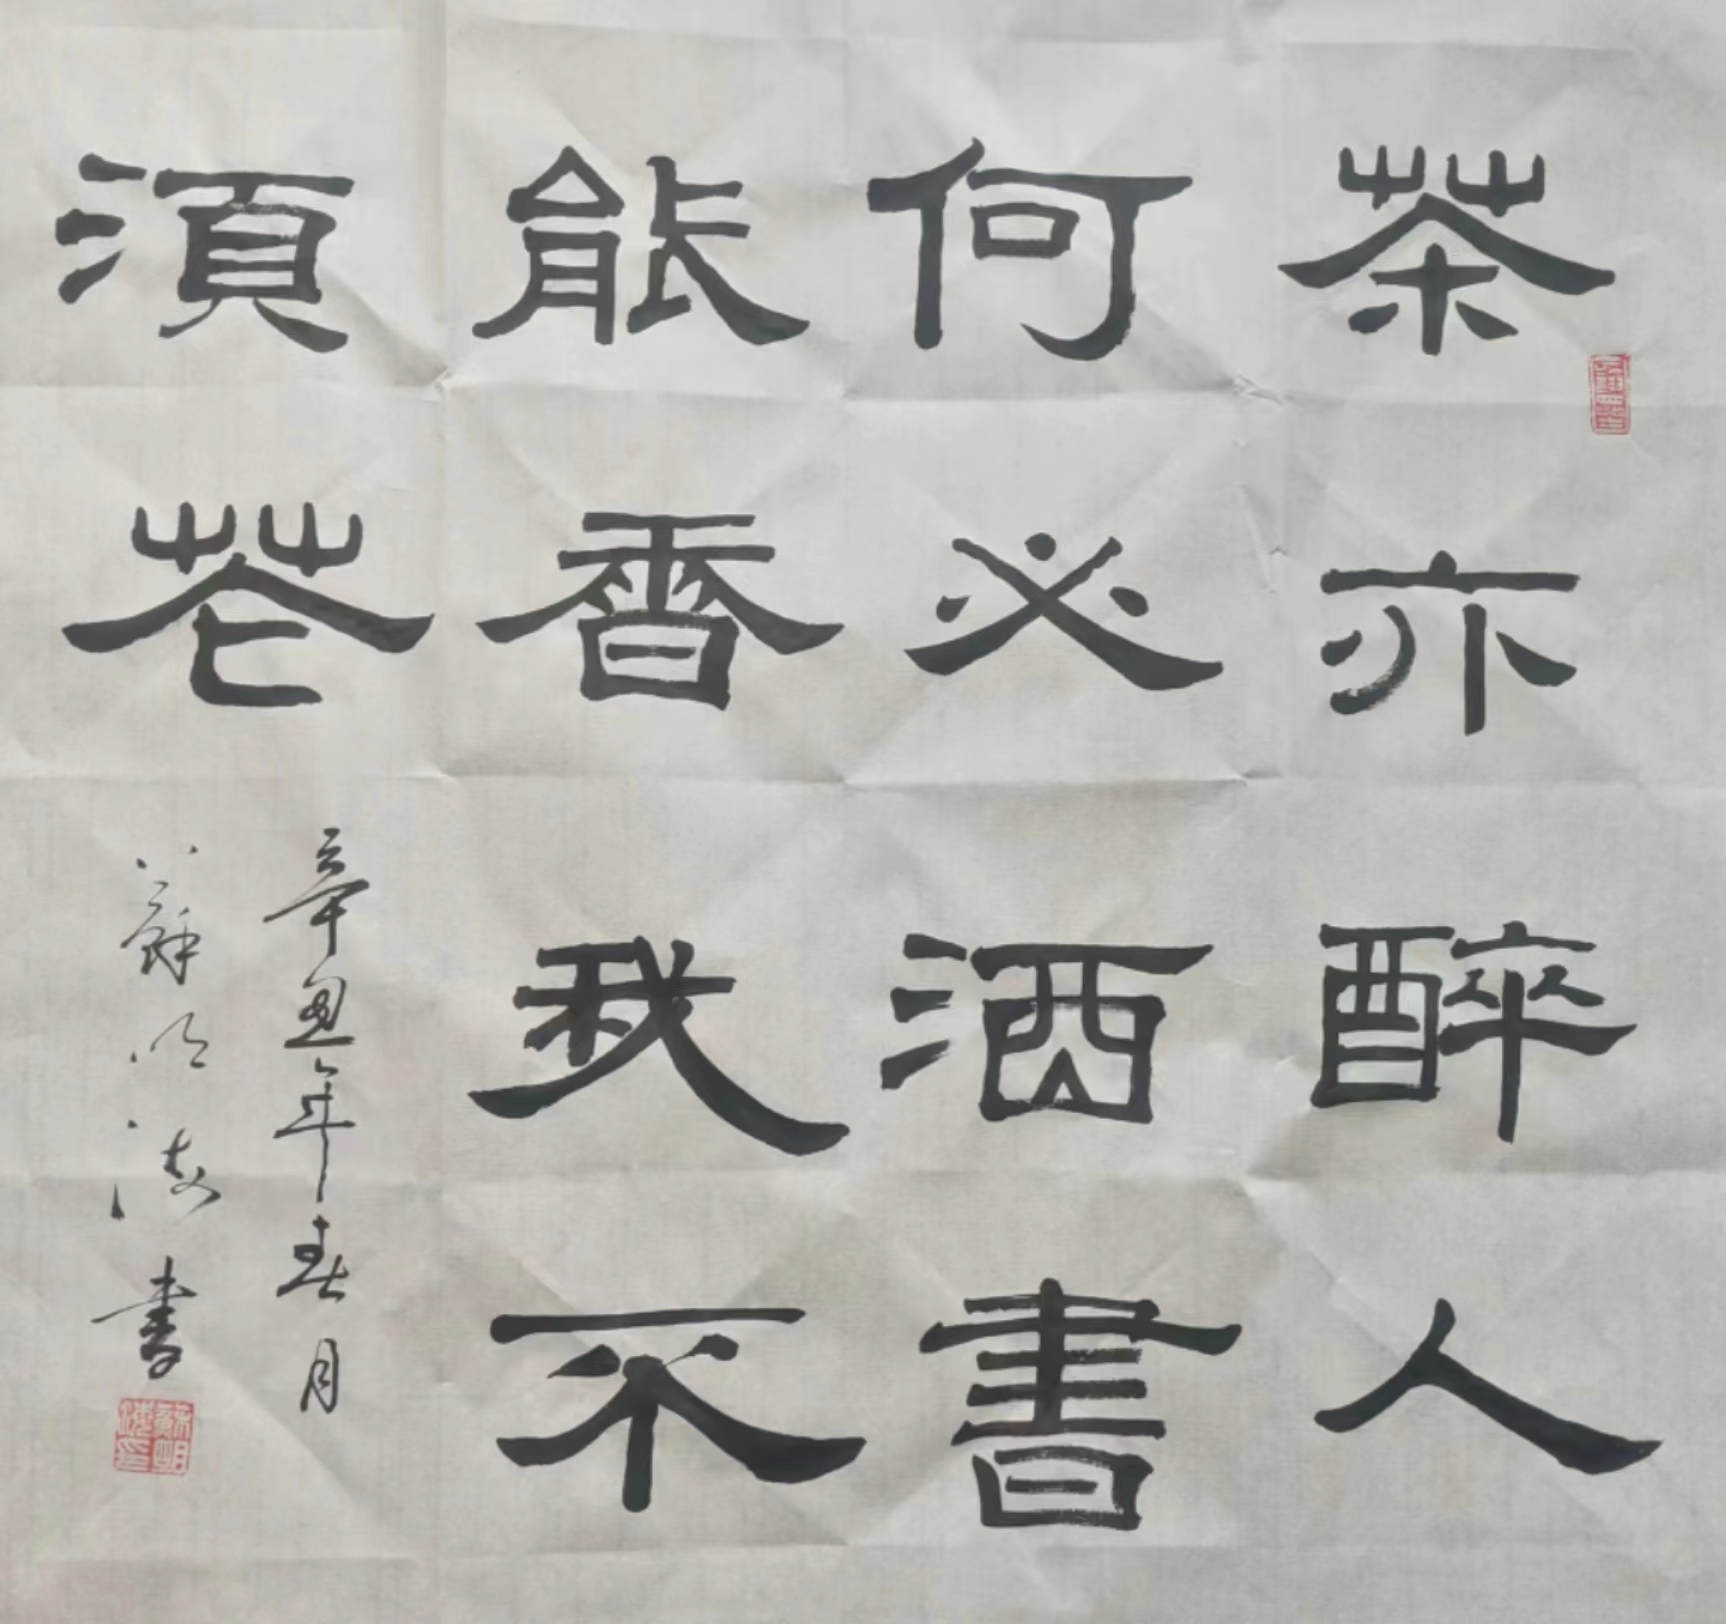 茶亦醉人
何必酒書
能香我不
須花
辛丑年春月
蘇明海書